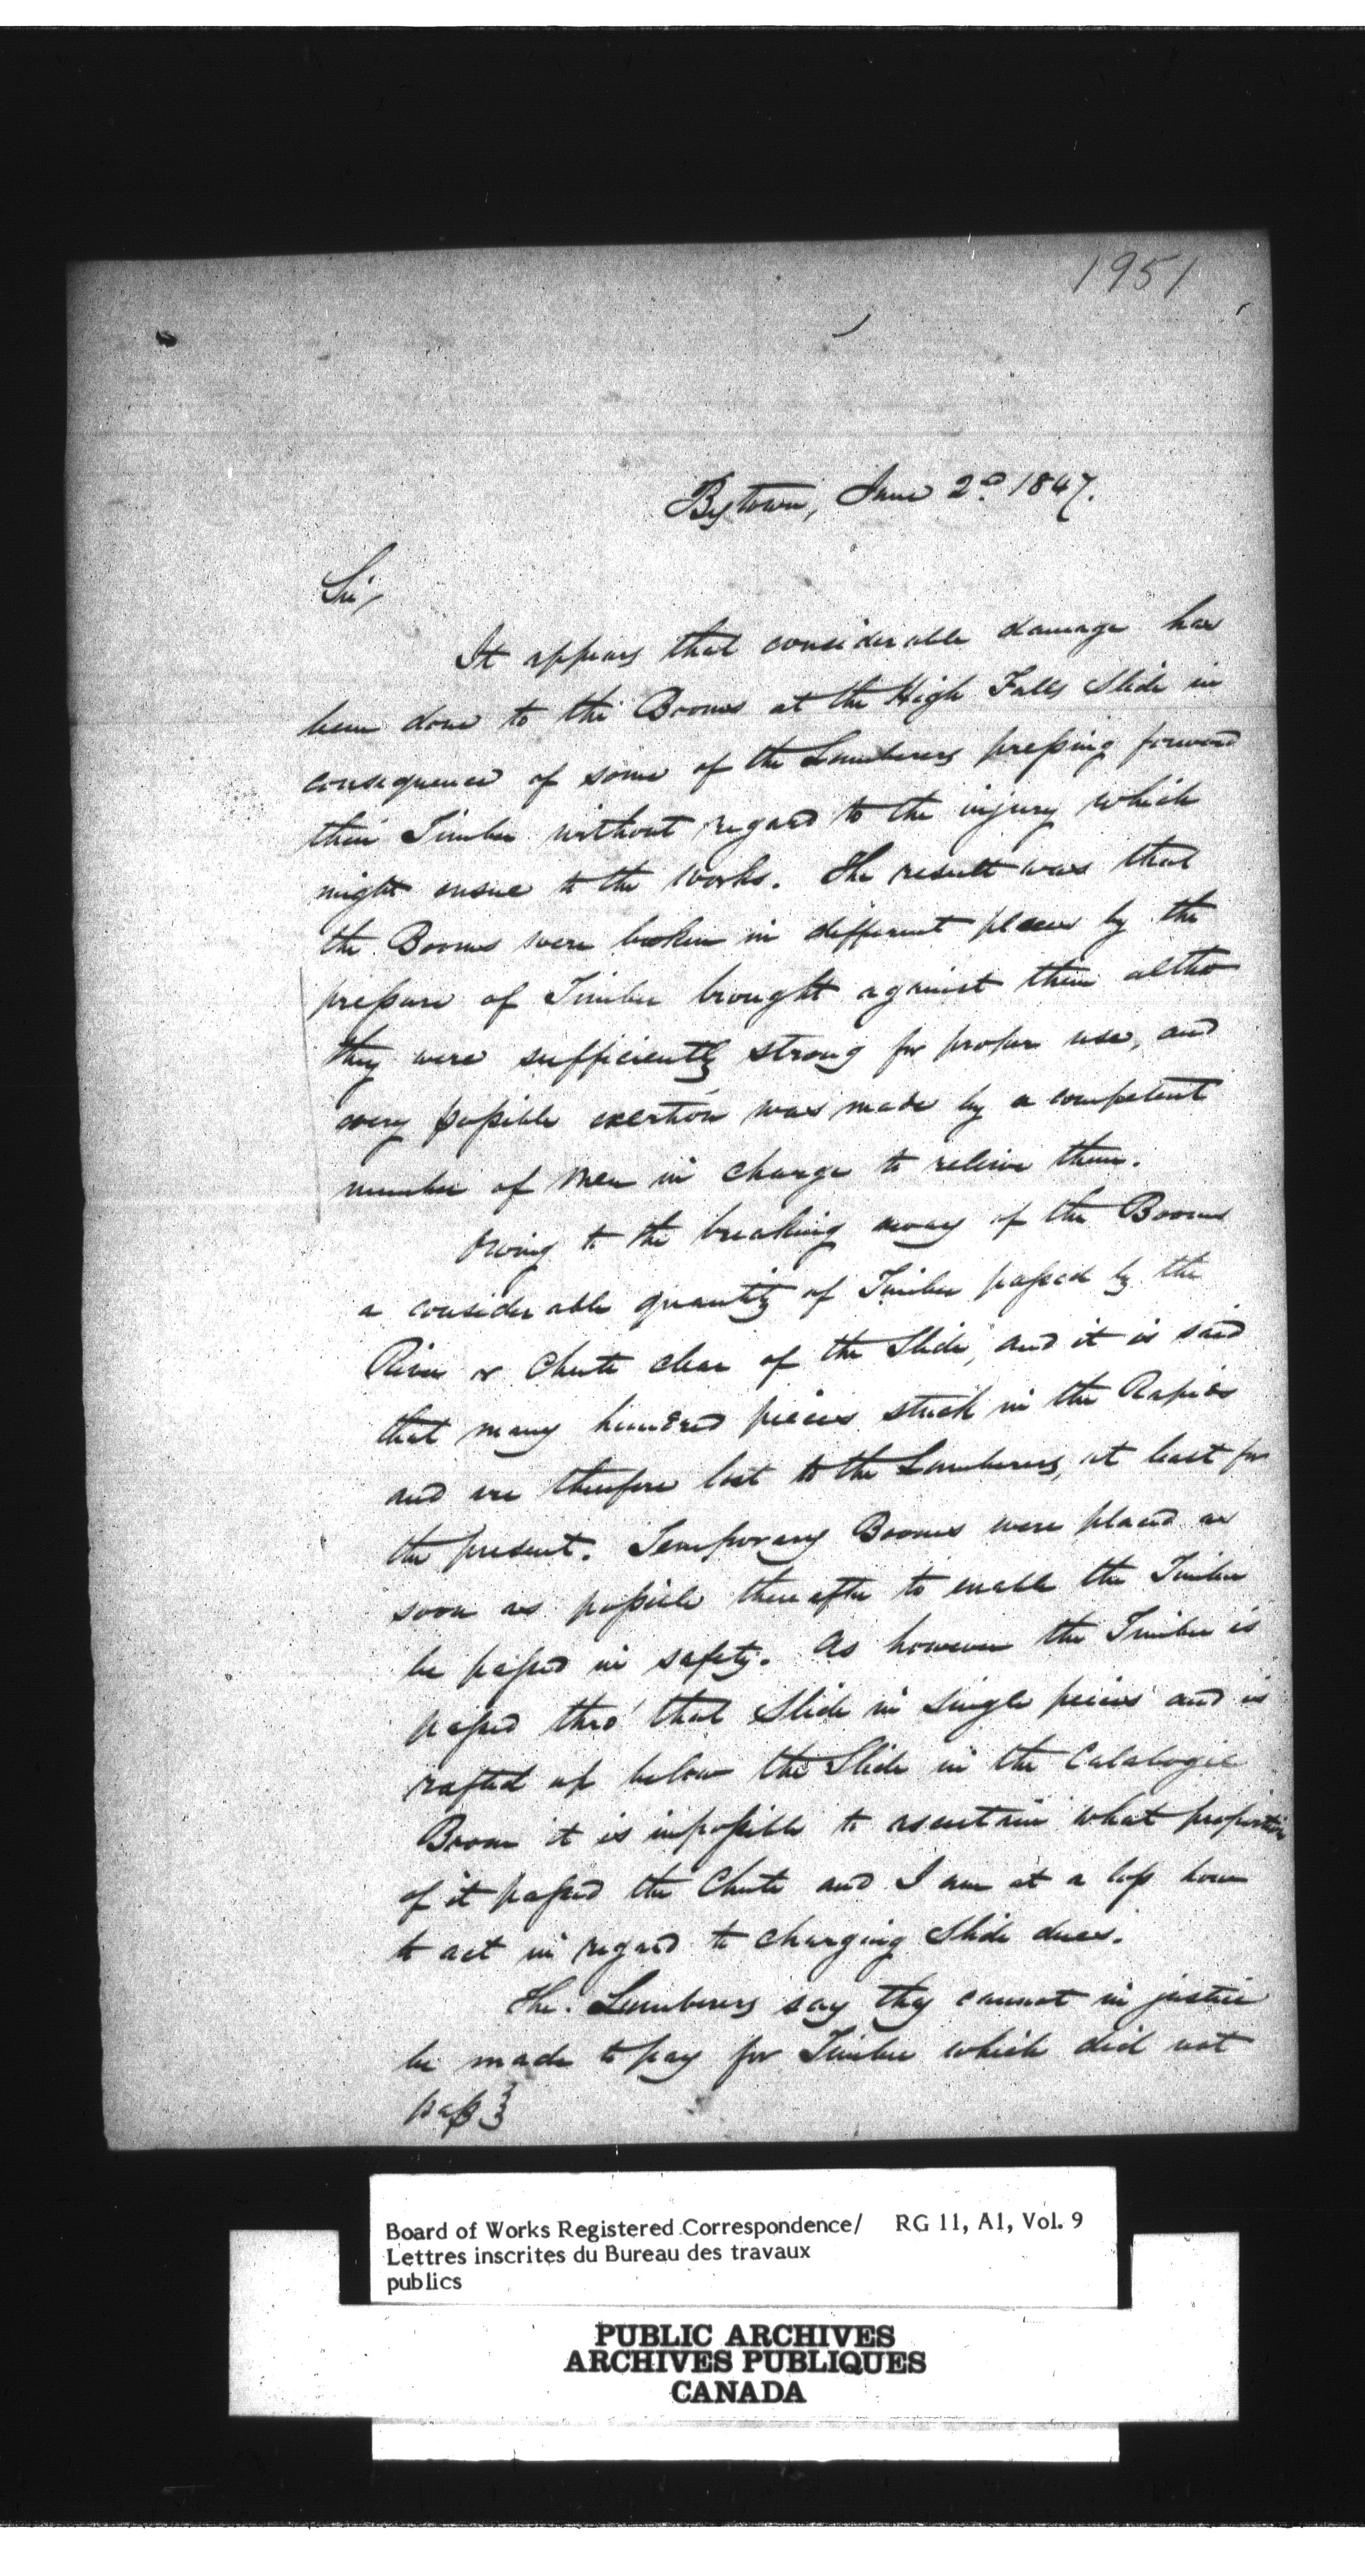 1951
Bytown, June 2d. 1847.
Sir,
It appears that considerable damage has
been done to the Booms at the High Falls Slide in
consequence of some of the Lumberers pressing forward
their Timber without regard to the injury which
might ensue to the works. The result was that
the Booms were broken in different places by the
pressure of Timber brought against them altho
they were sufficiently strong for proper use, and
every possible exertion was made by a competent
number of men in charge to relieve them.
Owing to the breaking away of the Booms
a considerable quantity of Timber passed by the
River & Chute clear of the Slide, and it is said
that many hundred pieces stuck in the Rapids
and are therefore lost to the Lumberers, at least for
the present. Temporary Booms were placed as
soon as possible thereafter to enable the Timber
be passed in safety. As however the Timber is
passed thro' that Slide in single pieces and is
rafted up below the Slide in the Calabogie
Boom it is impossible to ascertain what proportion
of it passed the Chute and I am at a loss how
to act in regard to charging Slide dues.
The Lumberers say they cannot in justice
be made to pay for Timber which did not
pass
Board of Works Registered Correspondence/ RG 11, A1, Vol. 9
Lettres inscrites du Bureau des travaux
publics
PUBLIC ARCHIVES
ARCHIVES PUBLIQUES
CANADA